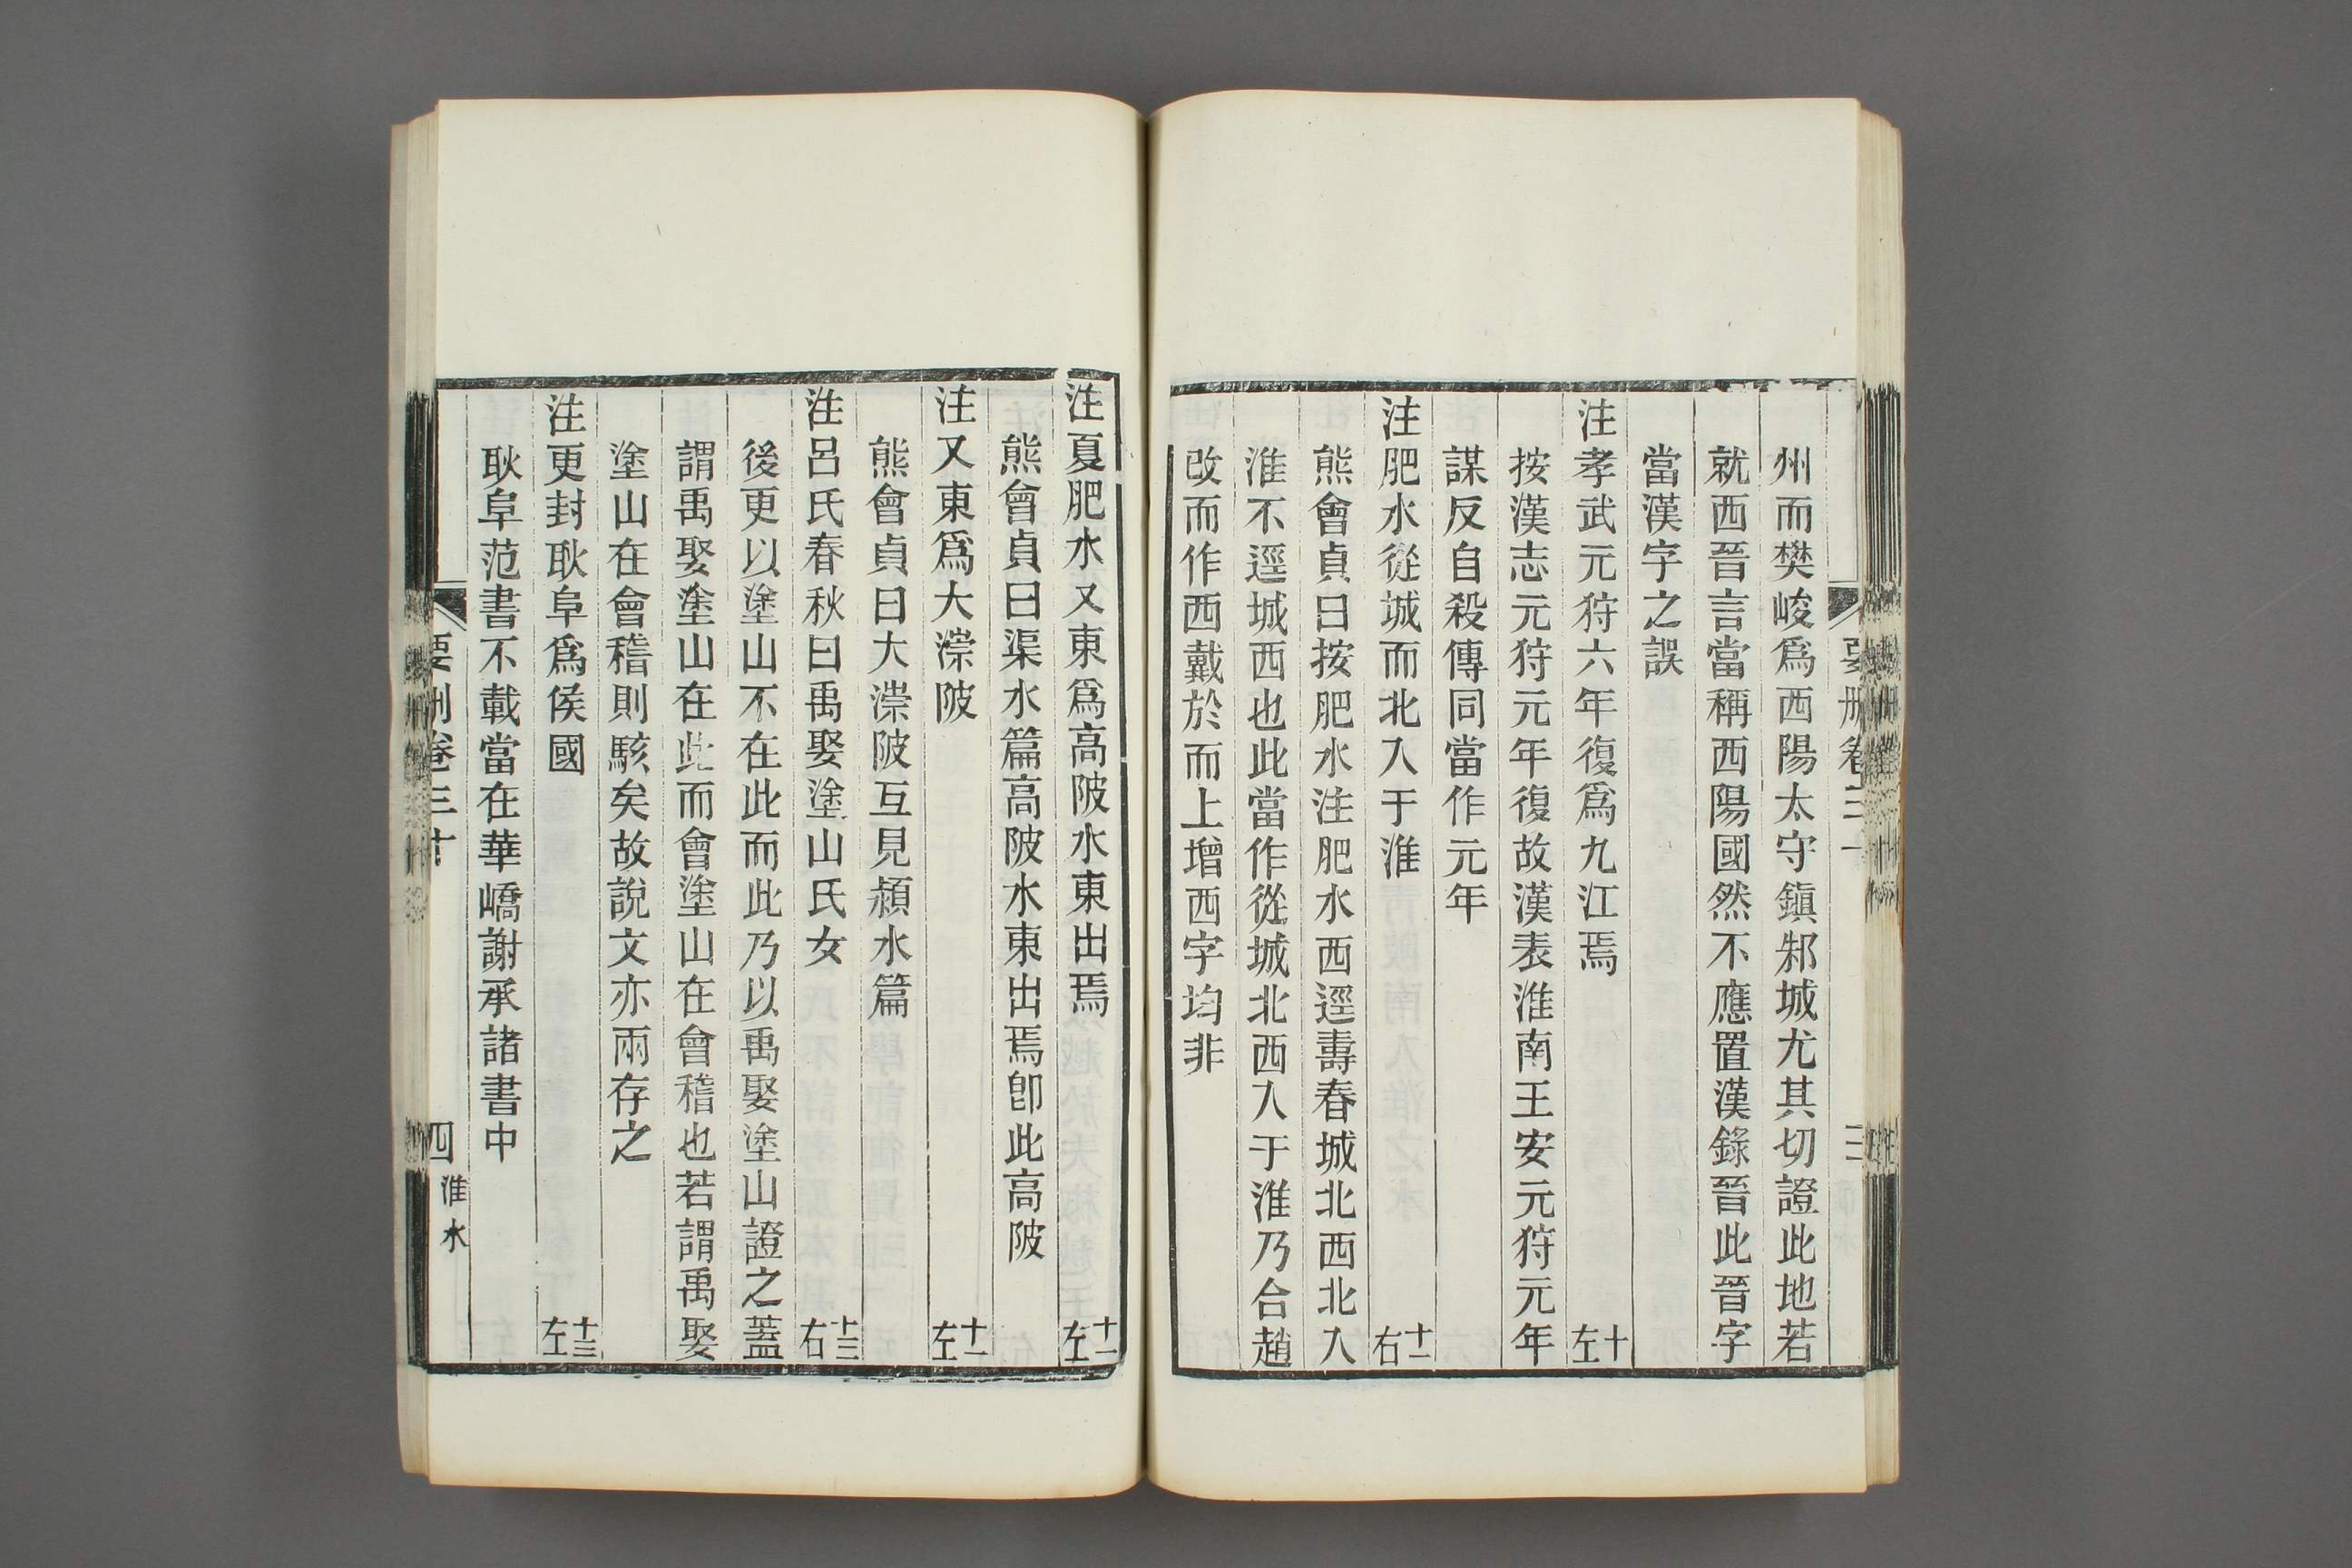 州而樊峻爲西陽太守鎮邾城尤其切證此地若
就西晉言當稱西陽國然不應置漢錄晉此晉字
當漢字之誤
注孝武元狩六年復爲九江焉 十左
按漢志元狩元年復故漢表淮南王安元狩元年
謀反自殺傳同當作元年
注肥水從城而北入于淮 十一右
熊會貞曰按肥水注肥水西逕壽春城北西北入
淮不逕城西也此當作從城北西入于淮乃合趙
改而作西戴於而上增西字均非
注夏肥水又東爲高陂水東出焉 十一左
熊會貞曰渠水篇高陂水東出焉卽此高陂
注又東爲大漴陂 十一左
熊會貞曰大漴陂互見潁水篇
注呂氏春秋曰禹娶塗山氏女 十三右
後更以塗山不在此而此乃以禹娶塗山證之蓋
謂禹娶塗山在此而會塗山在會稽也若謂禹娶
塗山在會稽則駭矣故說文亦兩存之
注更封耿阜爲侯國 十三左
耿阜范書不載當在華嶠謝承諸書中
要刪卷三十 四 淮水